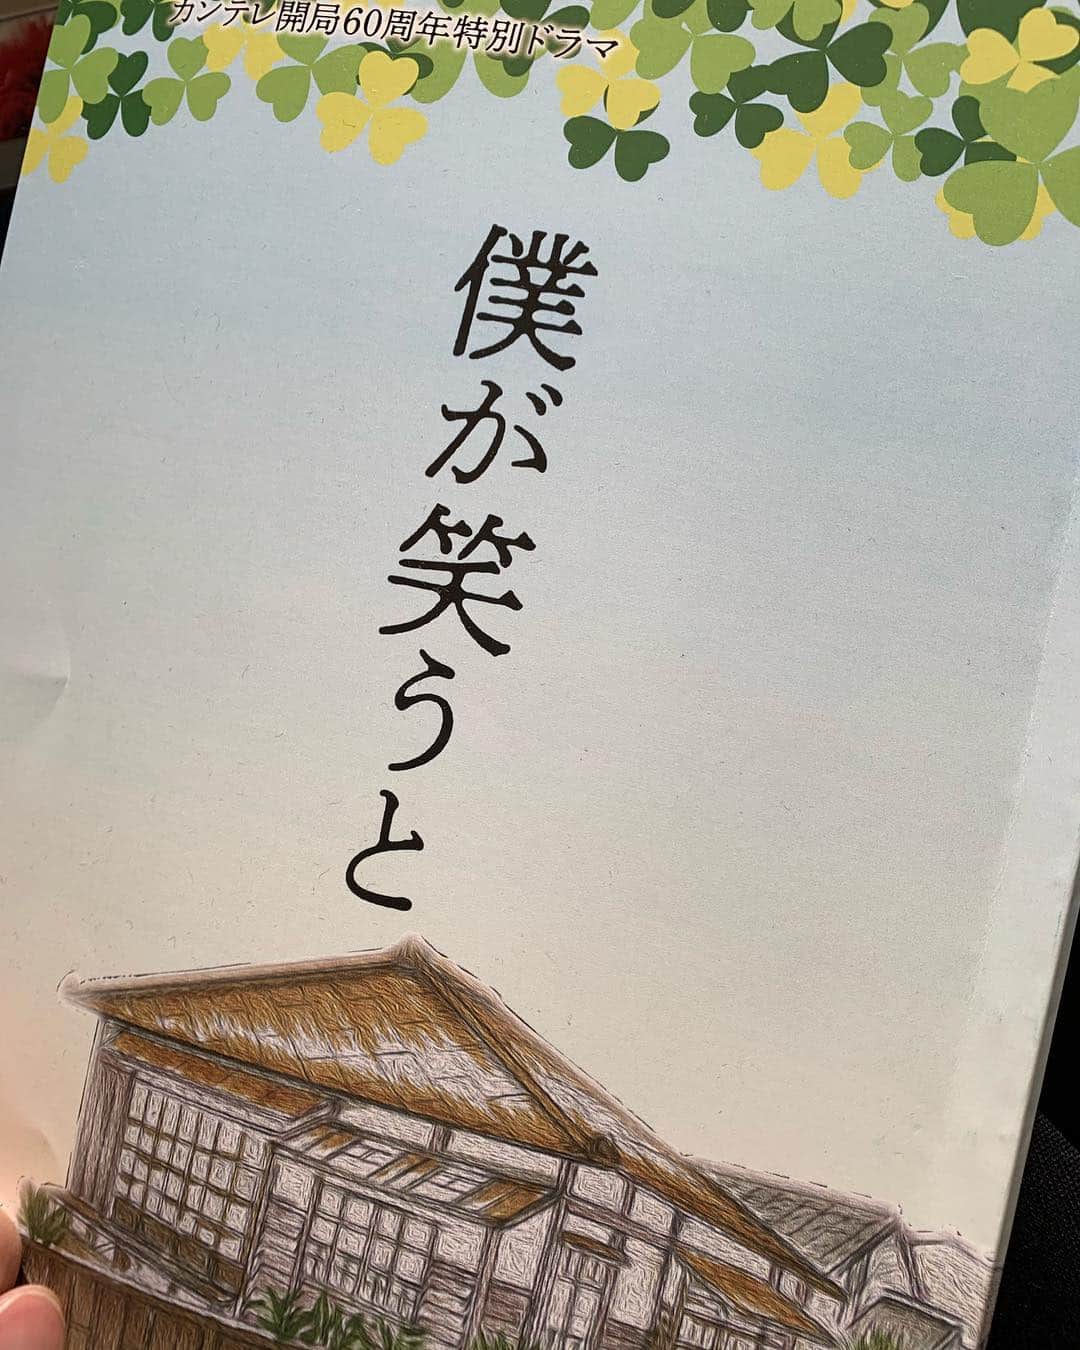 カンテレ開局60周年特別ドラマ
僕が笑うと